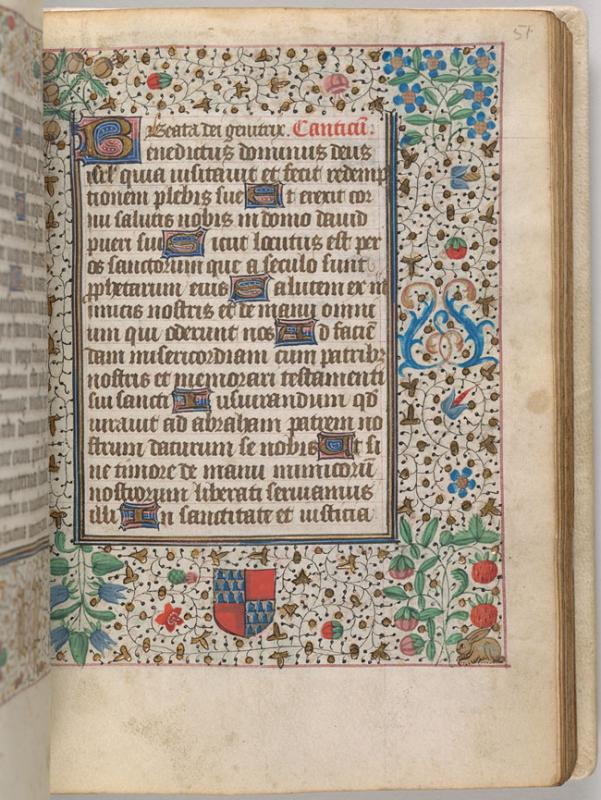 51
Beata dei genitrix. Canticū.
Benedictus dominus deus
isrl' quia visitavit et fecit redemp
tionem plebis sue Et erexit cor
nu salutis nobis in domo david
pueri sui Sicut locutus est per
os sanctorum que a seculo sunt
prophetarum eius Salutem ex in
imicis nostris et de manu omni
um qui oderunt nos Ad faciē
dam misericordiam cum patribz
nostris et memorari testamenti
sui sancti Iusiurandum qd
iuravit ad abraham patrem no
strum daturum se nobis Ut si
ne timore de manu inimicorū
nostrorum liberati serviamus
illi In sanctitate et iusticia